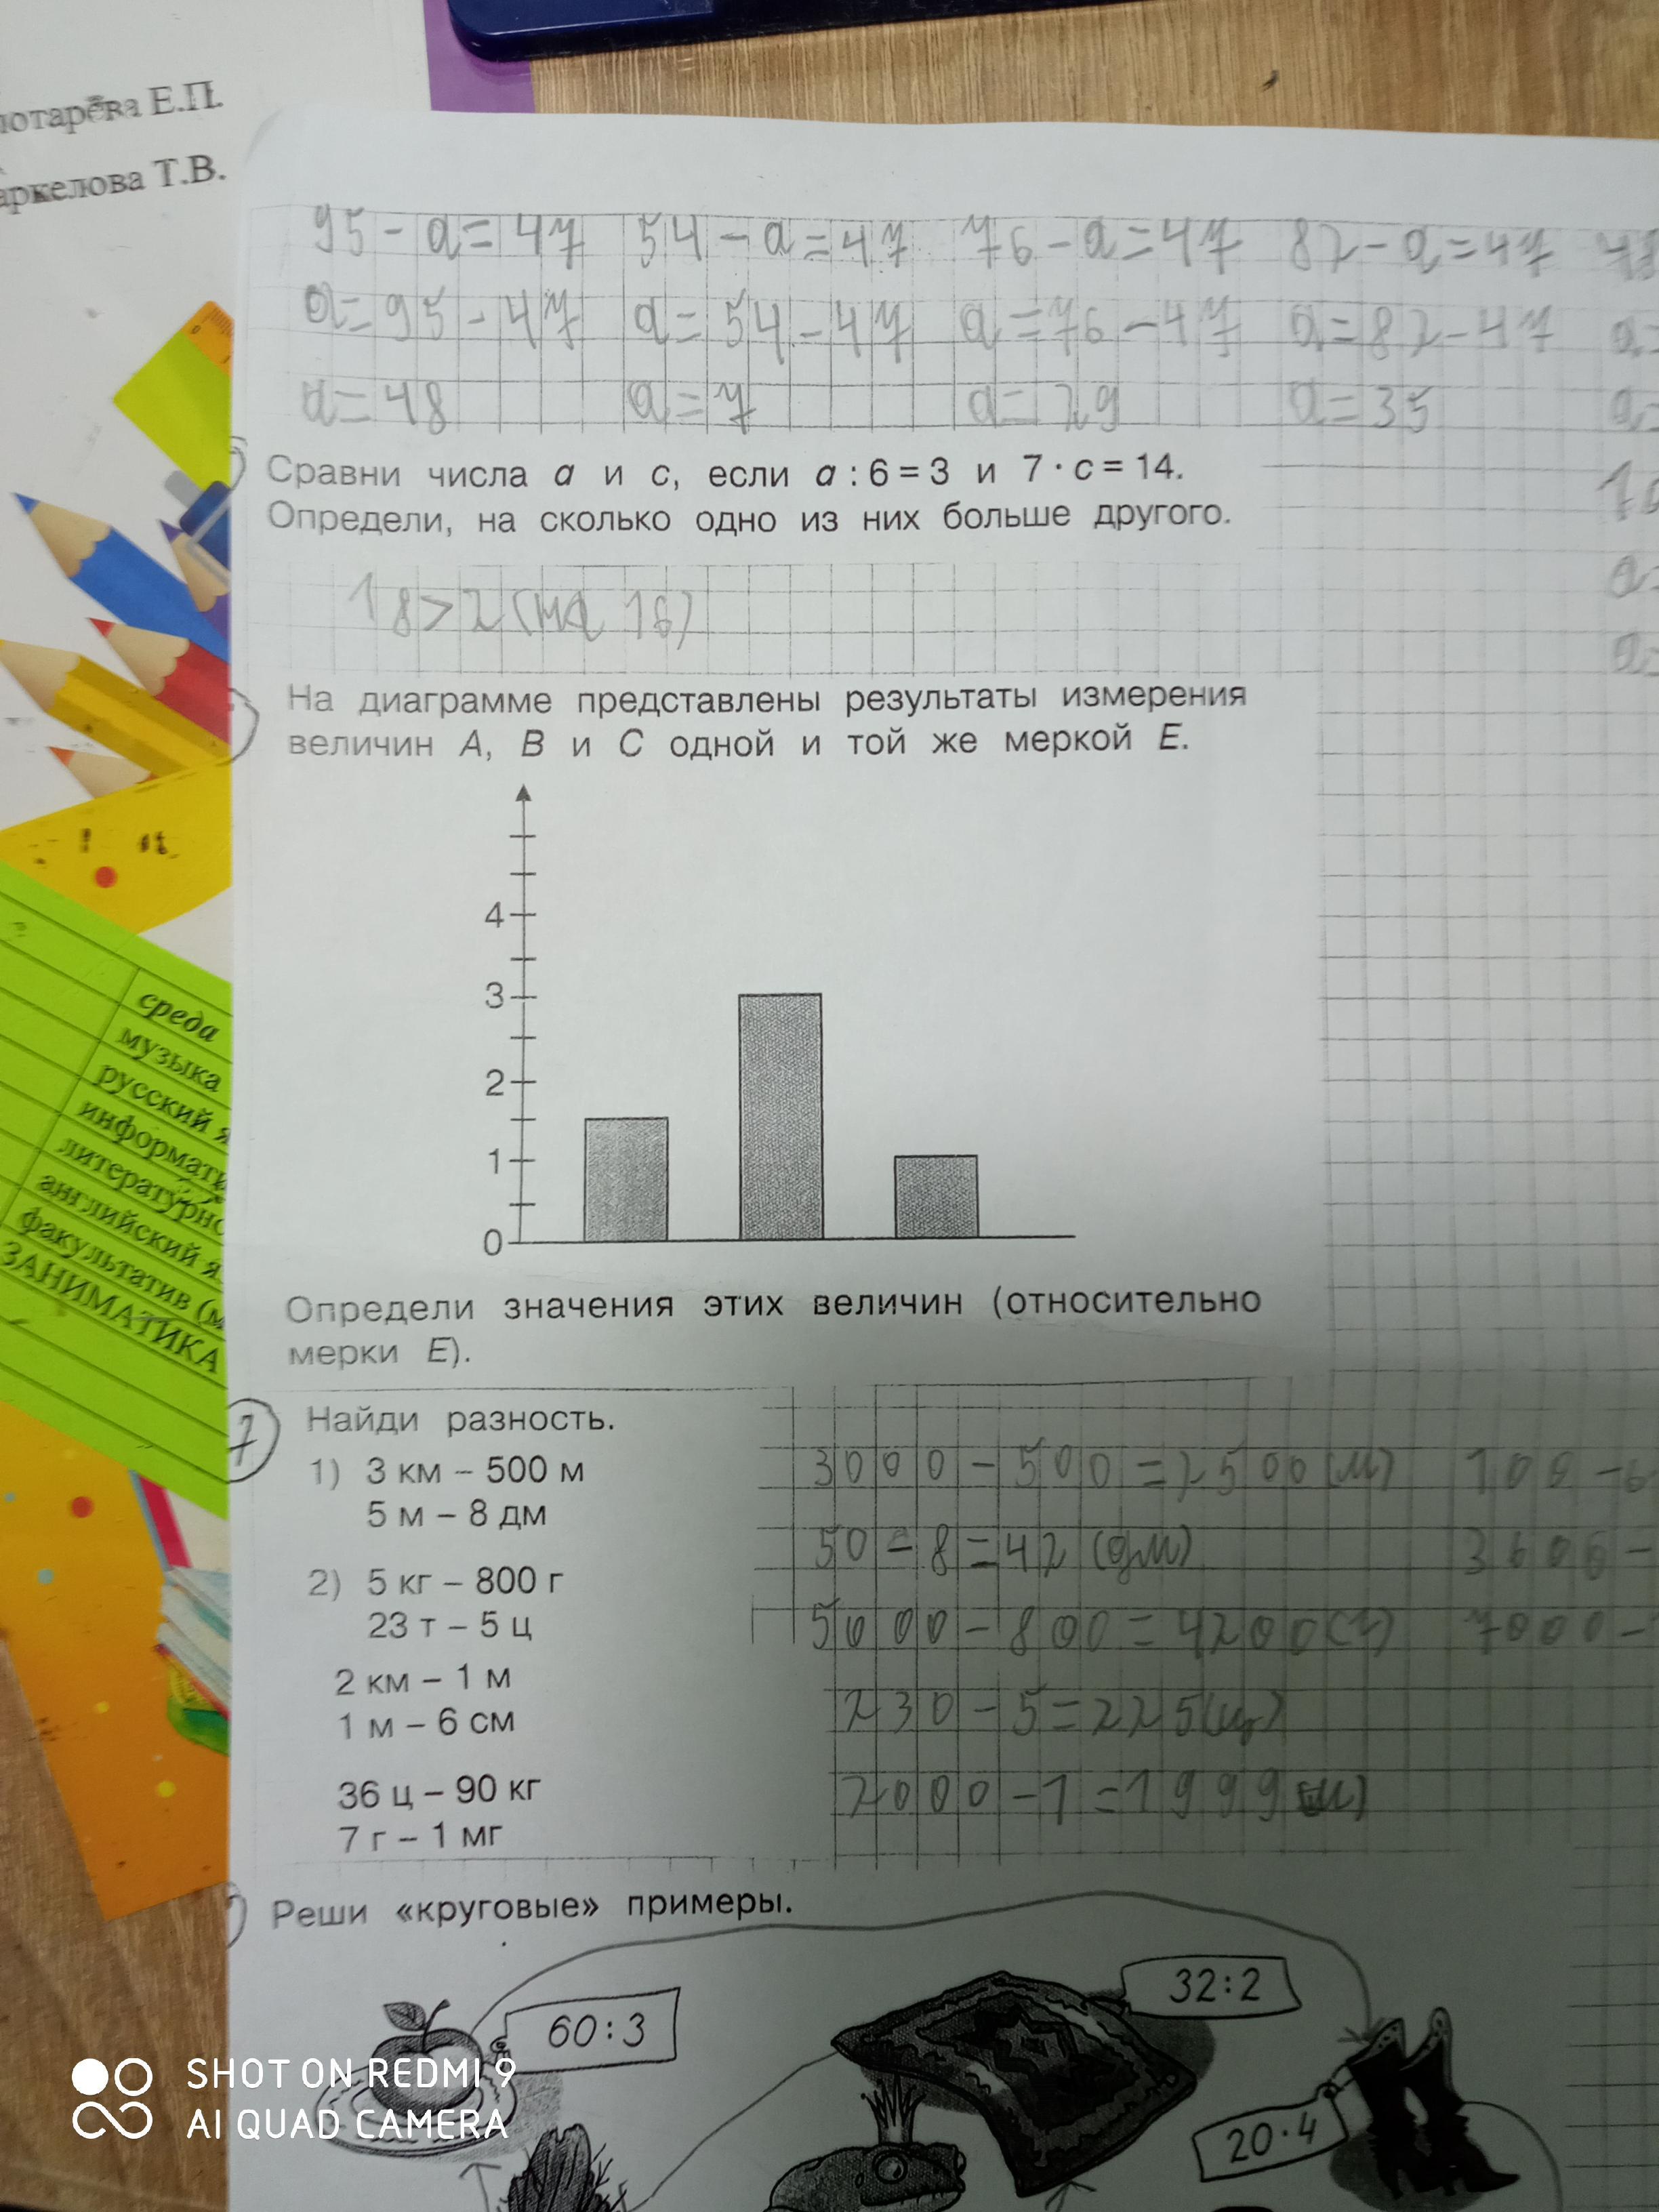 Е.П.
Т.В.
95 - a = 47 54 - a = 47 76 - a = 47 82 - a = 47
a = 95 - 47 a = 54 - 47 a = 76 - 47 a = 82 - 47
a = 48 a = 7 a = 29 a = 35
Сравни числа a и c, если a : 6 = 3 и 7 · c = 14.
Определи, на сколько одно из них больше другого.
18 > 2 (на 16)
На диаграмме представлены результаты измерения
величин A, B и C одной и той же меркой E.
4
3
2
1
0
Определи значения этих величин (относительно
мерки E).
среда
музыка
русский я
английский я
факультатив (м
ЗАНИМАТИКА
7
Найди разность.
1) 3 км – 500 м
5 м – 8 дм
2) 5 кг – 800 г
23 т – 5 ц
2 км – 1 м
1 м – 6 см
36 ц – 90 кг
7 г – 1 мг
3000 - 500 = 2500 (м)
50 - 8 = 42 (дм)
5000 - 800 = 4200 (г)
230 - 5 = 225 (ц)
2000 - 1 = 1999 (м)
3600 -
7000 -
Реши «круговые» примеры.
60 : 3
32 : 2
20 · 4
SHOT ON REDMI 9
AI QUAD CAMERA